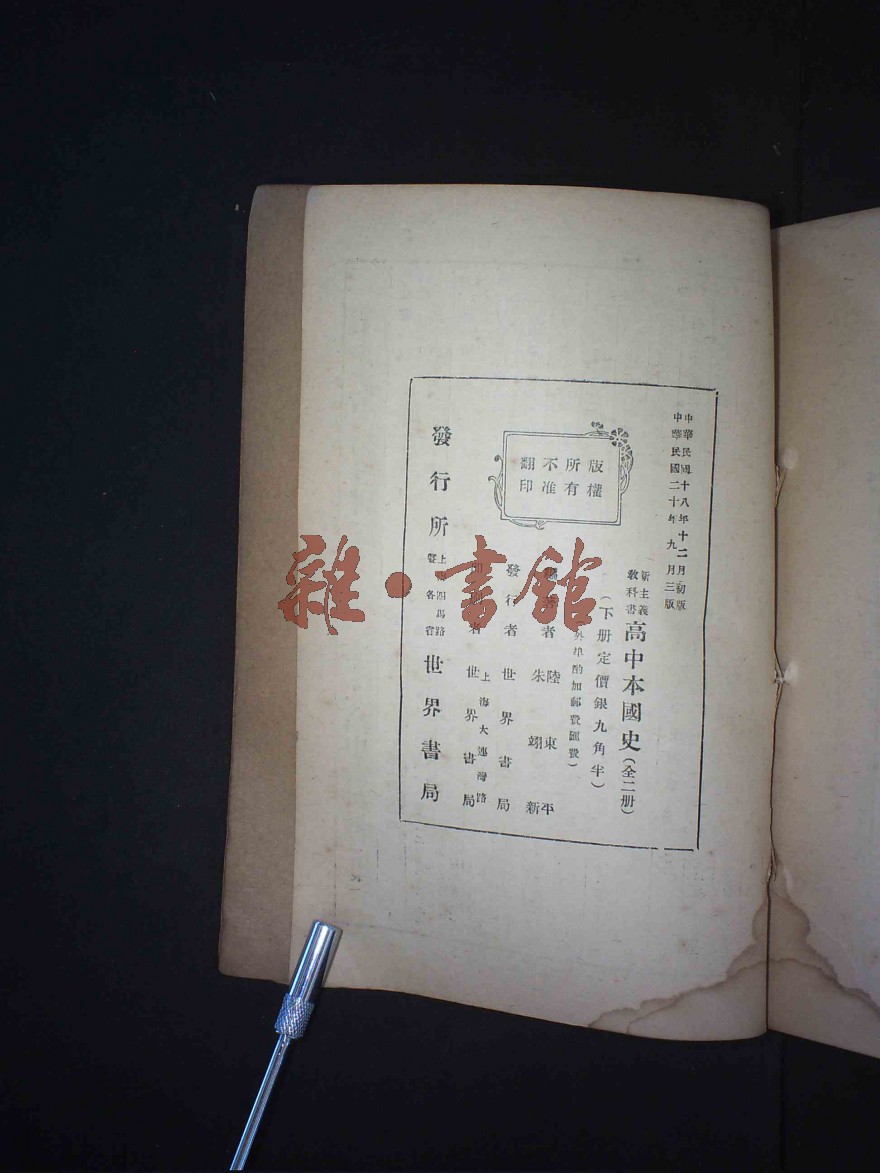 中華民國十八年十二月初版
中華民國二十年九月三版
版權
所有
不准
翻印
新主義
教科書
高中本國史(全二册)
(下册定價銀九角半)
酌加郵費匯費)
著者
陸東平
朱翊新
發行者世界書局
者
上海大連灣路
世界書局
發行所
上 四馬路
各省
世界書局
雜·書館